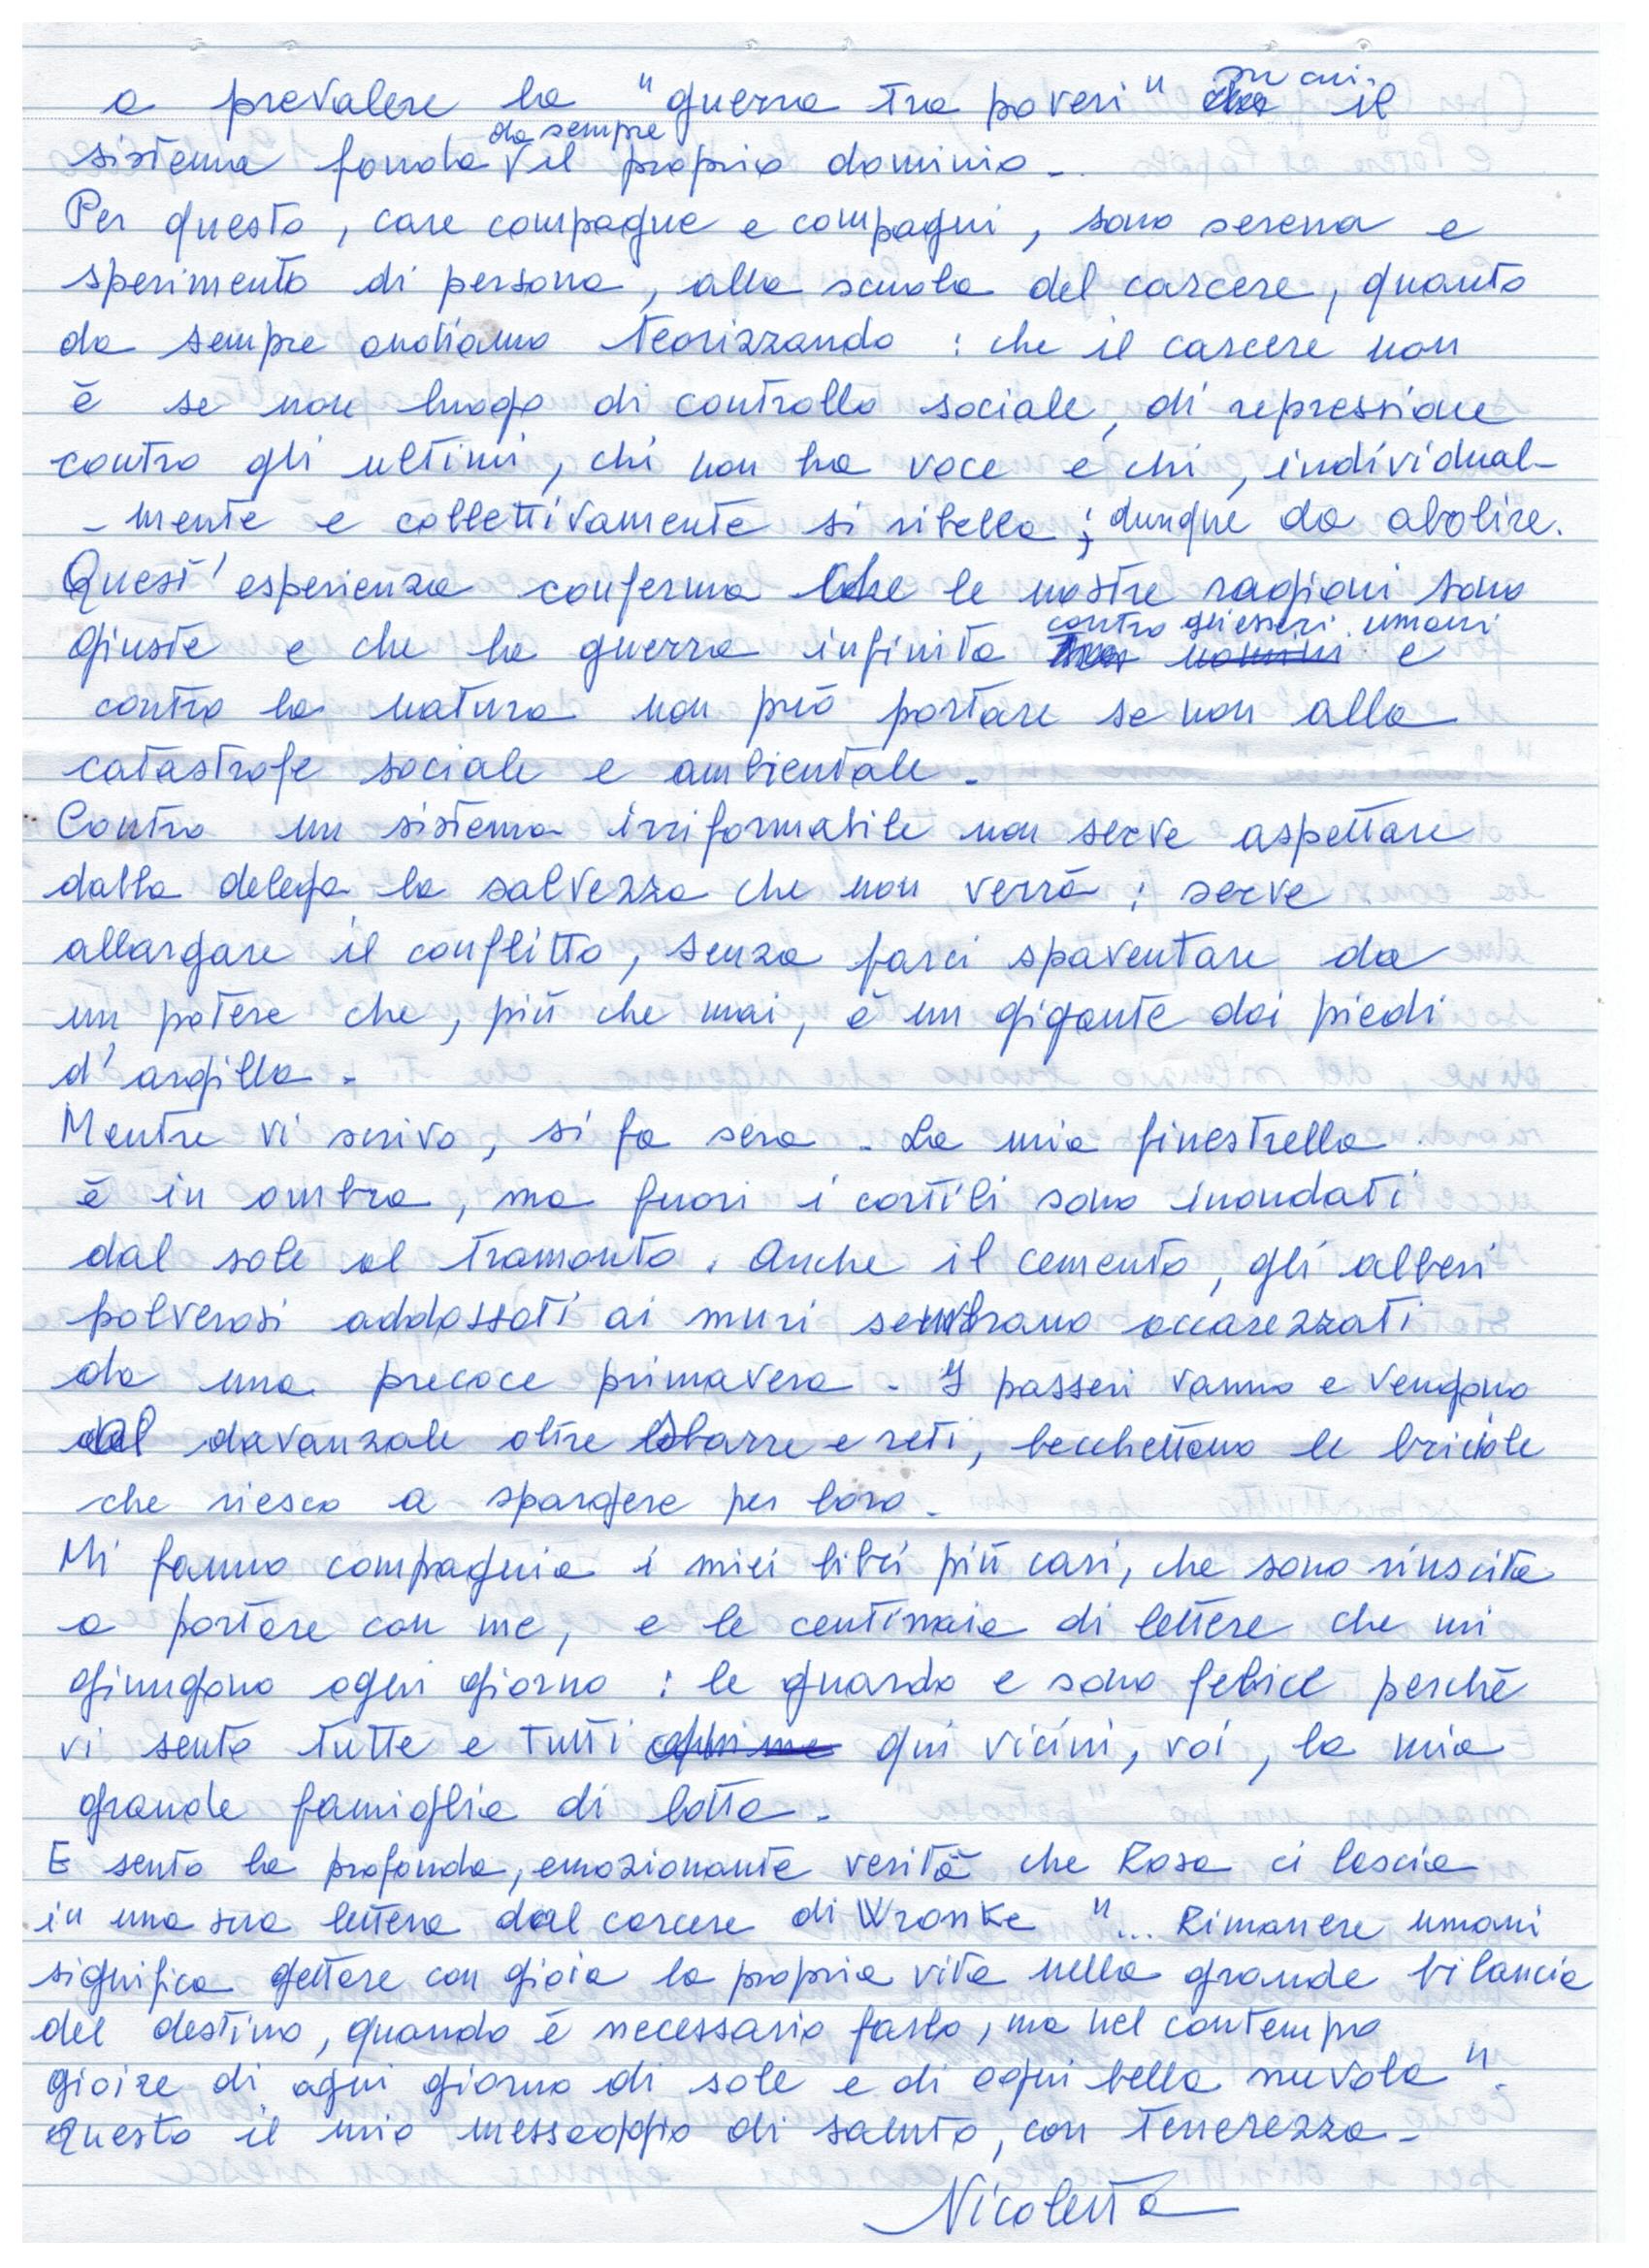 a prevalere la "guerra tra poveri" su cui il
sistema fonda da sempre il proprio dominio.
Per questo, care compagne e compagni, sono serena e
sperimento di persona, alla scuola del carcere, quanto
da sempre andiamo teorizzando : che il carcere non
è se non luogo di controllo sociale, di repressione
contro gli ultimi, chi non ha voce e chi, individual-
- mente e collettivamente si ribella ; dunque da abolire.
Quest' esperienza conferma che le nostre ragioni sono
giuste e che la guerra infinita contro gli esseri umani e
contro la natura non può portare se non alla
catastrofe sociale e ambientale.
Contro un sistema irriformabile non serve aspettare
dalla delega la salvezza che non verrà : serve
allargare il conflitto, senza farci spaventare da
un potere che, più che mai, è un gigante dai piedi
d'argilla.
Mentre vi scrivo, si fa sera. La mia finestrella
è in ombra, ma fuori i cortili sono inondati
dal sole al tramonto. Anche il cemento, gli alberi
polverosi addossati ai muri sembrano accarezzati
da una precoce primavera. I passeri vanno e vengono
dal davanzale oltre sbarre e reti, becchettano le briciole
che riesco a spargere per loro.
Mi fanno compagnia i miei libri più cari, che sono riuscita
a portare con me, e le centinaia di lettere che mi
giungono ogni giorno : le guardo e sono felice perchè
vi sento tutte e tutti qui vicini, voi, la mia
grande famiglia di lotta.
E sento la profonda, emozionante verità che Rosa ci lascia
in una sua lettera dal carcere di Wronke "... Rimanere umani
significa gettare con gioia la propria vita nella grande bilancia
del destino, quando è necessario farlo, ma nel contempo
gioire di ogni giorno di sole e di ogni bella nuvola".
Questo il mio messaggio di saluto, con tenerezza.
Nicoletta